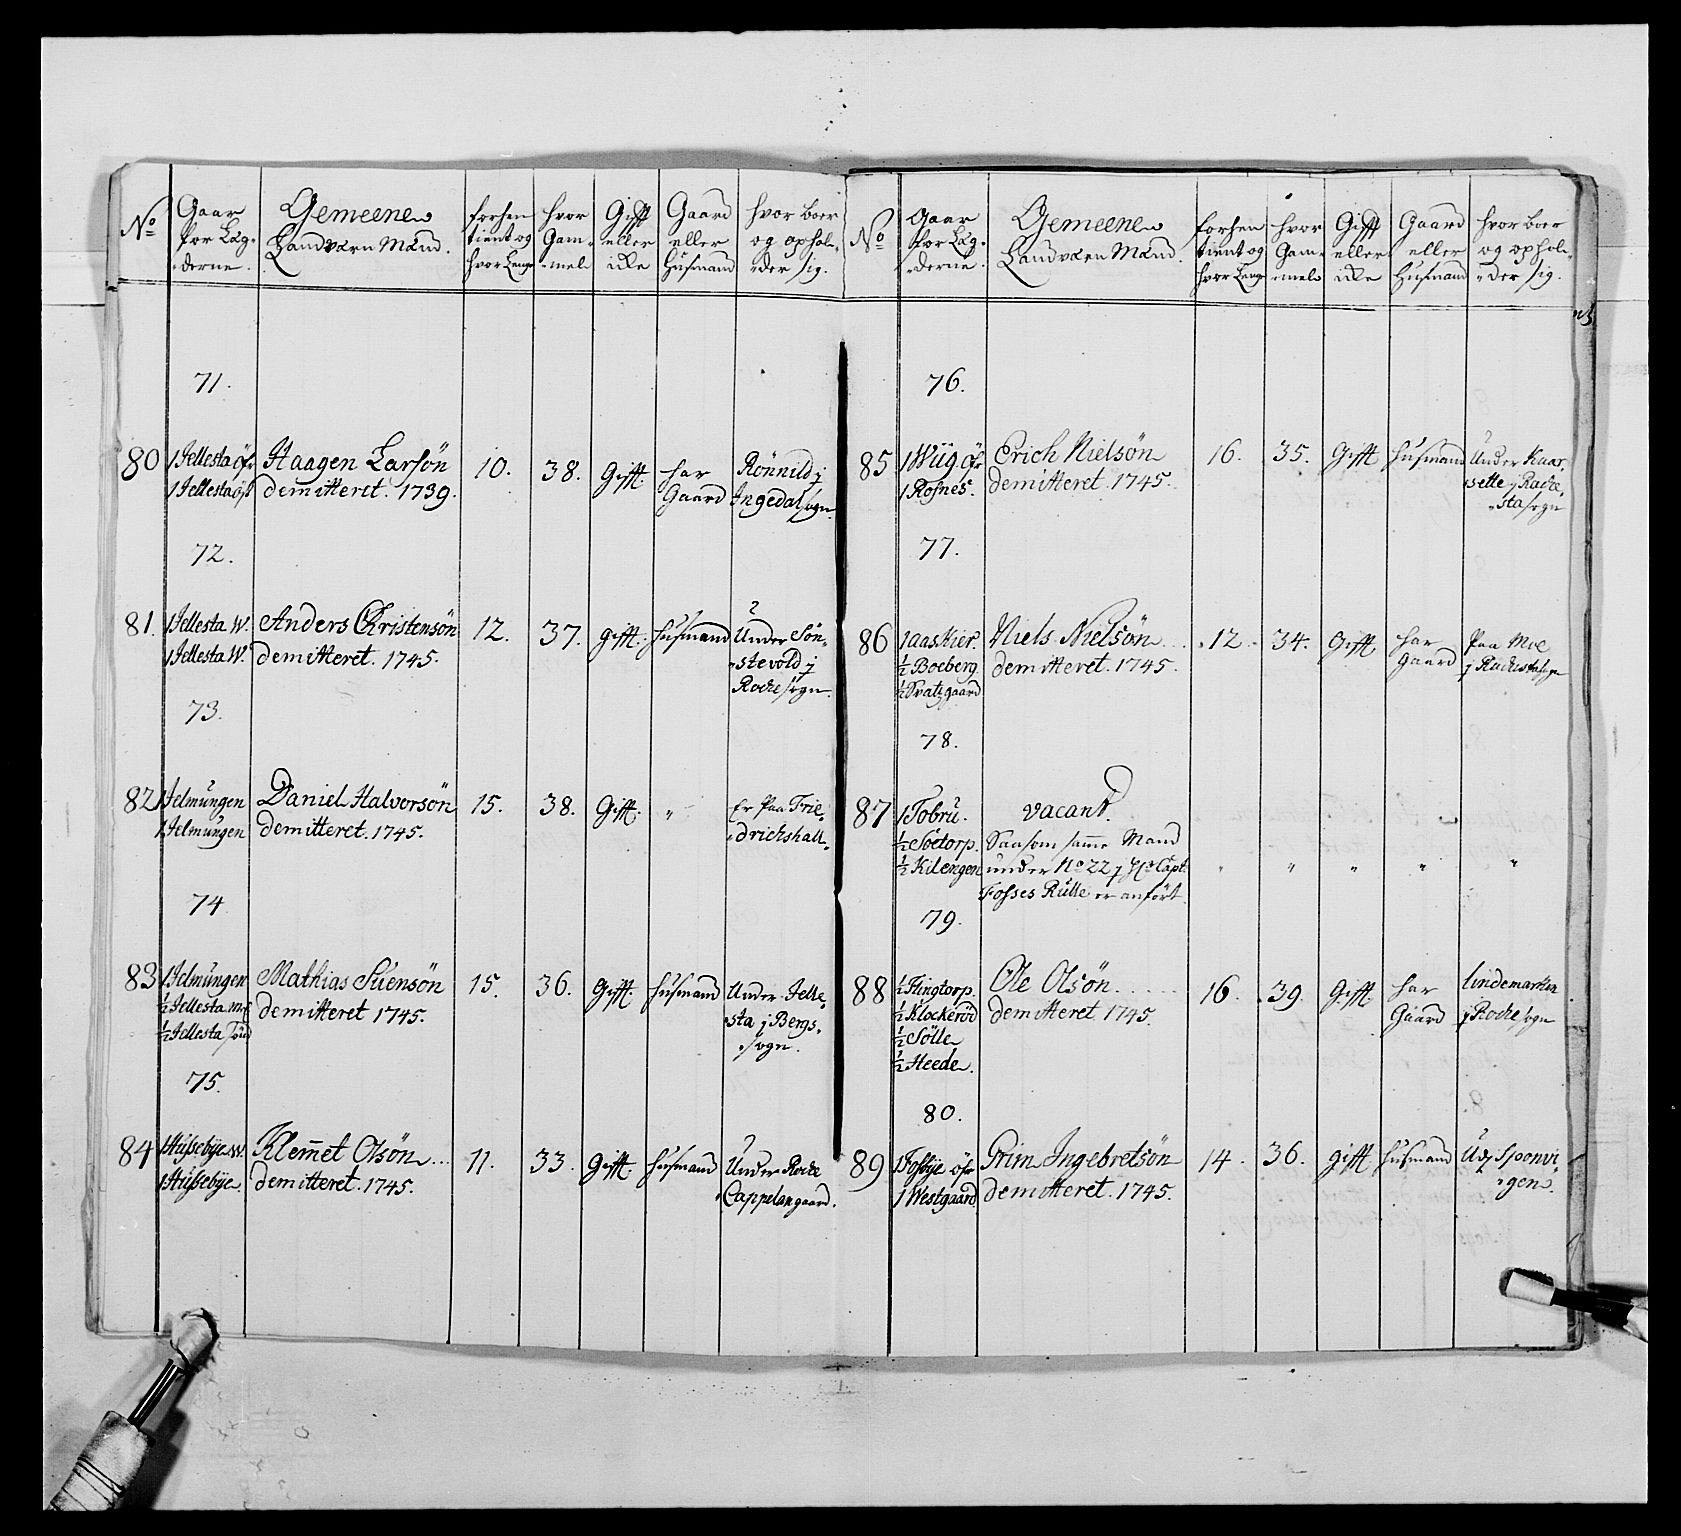 No
Gaar
for Læg-
derne.
Gemeene
Landværn Mænd.
forhen
tient og
hvor Lenge
hvor
Gam-
mel
Gifft
eller
icke
Gaard
eller
Husmand
hvor boer
og ophol-
der sig.
71.
80
1 Jellesta öfr
1 Jellesta öst
Haagen Larsön
demitteret. 1739.
10.
38.
Gifft.
har
Gaard
Rönnild j
Ingedal sogn.
72.
81.
1 Jellesta W.
1 Jellesta W.
Anders Christensön
demitteret. 1745.
12.
37.
Gifft.
husmand
Under Sön-
stevold j
Rocke sogn.
73.
82
1 Jelmungen
1 Jelmungen
Daniel Halvorsön
demitteret. 1745.
15.
38.
Gifft.
"
Er paa Frie-
drichshall.
74
83
1 Jelmungen
½ Jellesta
½ Jellesta
Mathias Suensön
demitteret 1745.
15.
36.
Gifft.
husmand
Under Jelle-
sta j Bergs-
sogn.
75.
84
1 Hussebÿe W.
1 Hussebÿe.
Klemmet Olsön
demitteret. 1745.
11.
33.
Gifft.
husmand
Under Rocke
Cappelangaard.
No
Gaar
for Læg-
derne.
Gemeene
Landværn Mænd.
forhen
tient og
hvor Leng
hvor
Gam-
mel
Gifft
eller
icke
Gaard
eller
Husmand
hvor boer
og ophol-
der sig.
76.
85
1 Wiig öfr
1 Rosnes.
Erich Nielsön
demitteret. 1745.
16.
35.
Gifft
husmand
Under Kaar-
sette j Racke-
sta sogn
77.
86
1 aaskier.
½ Boeberg.
½ Svatsgaard
Niels Nielsön
demitteret. 1745.
12
34.
Gifft
har
Gaard
Paa Moe
j Rackesta sogn
78.
87
1 Tobru.
½ Söetorp.
½ Kilengen
vacant.
Saasom samme Mand
under No 22 j Hr Capt.
Fosses Rulle er anfört.
"
"
"
"
"
79.
88
½ Flingtorp.
½ Klockeröd
½ Sölle
½ Heede.
Ole Olsön
demitteret 1745.
16
39.
Gifft.
har
Gaard
Lindemarken
j Rocke sogn
80.
89
1 Fosbÿe öfr
1 Westgaard
Grim Ingebretsön
demitteret. 1745.
14
36.
gifft
husmand
Spoonvi-
gen.